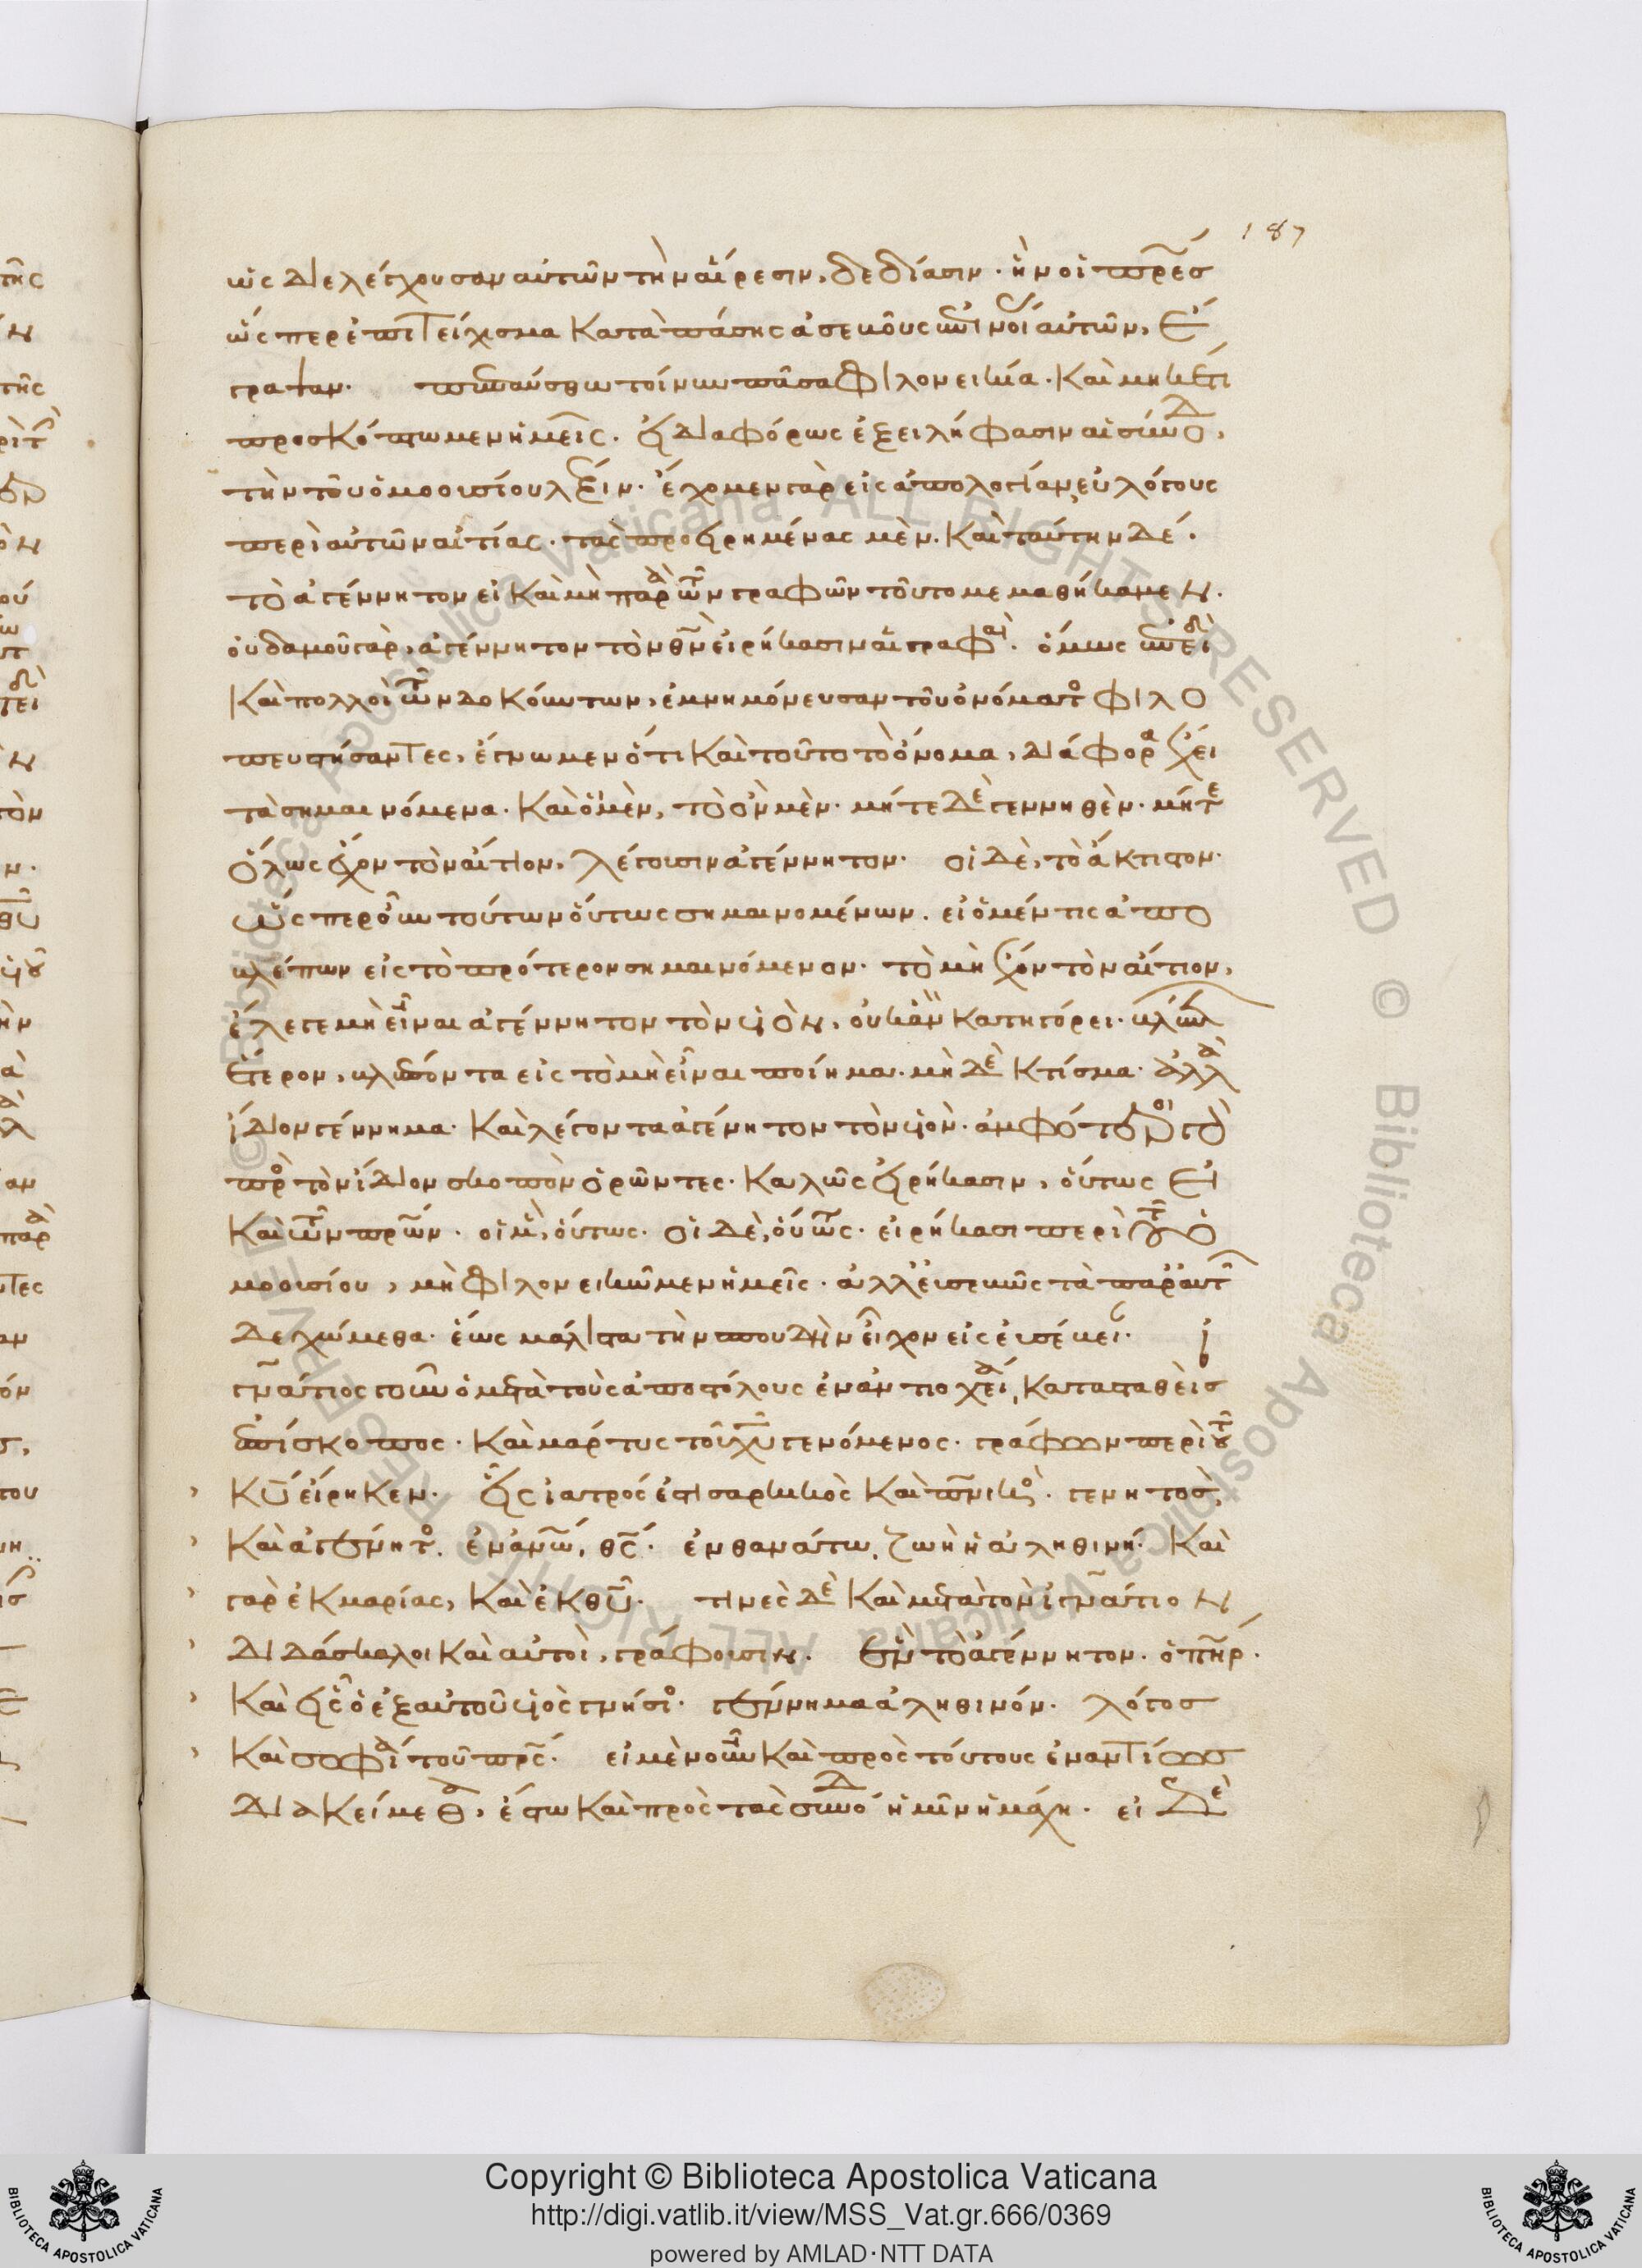 187
ὡς διελέγχουσαν αὐτῶν τὴν αἵρεσιν, δεδίασιν. ἣν οἱ πρες
ὥσπερ ἐπιτείχισμα κατὰ πάσης ἀσεβοῦς ἐπινοίας αὐτῶν, ἔ
γραψαν. πεπαύσθω τοίνυν πᾶσα φιλονεικία. καὶ μηκέτι
προσκόπτωμεν ἡμεῖς. εἰ διαφόρως ἐξειλήφασιν αἱ σύνοδ,
τὴν τοῦ ὁμοουσίου λέξιν. ἔχομεν γὰρ εἰς ἀπολογίαν εὐλόγους
περὶ αὐτῶν αἰτίας. τὰς προειρημένας μὲν. καὶ ταύτην δέ.
τὸ ἀγέννητον εἰ καὶ μὴ παρὰ τῶν γραφῶν τοῦτο μεμαθήκαμεν.
οὐδαμοῦ γὰρ, ἀγέννητον τὸν θν εἰρήκασιν αἱ γραφαὶ. ὅμως ἐπειδὴ
καὶ πολλοὶ τῶν δοκούντων, ἐμνημόνευσαν τοῦ ὀνόματο φιλο
πευστήσαντες, ἔγνωμεν ὅτι καὶ τοῦτο τὸ ὄνομα, διάφορα ἔχει
τὰ σημαινόμενα. καὶ οἱ μὲν, τὸ ὂν μὲν. μήτε δὲ γεννηθὲν. μήτε
ὅλως ἔχον τὸν αἴτιον, λέγουσιν ἀγέννητον. οἱ δὲ, τὸ ἄκτιστον.
ὥσπερ οὖν τούτων οὕτως σημαινομένων. εἰ ὁ μέν τις ἀπο
βλέπων εἰς τὸ πρότερον σημαινόμενον. τὸ μὴ ἔχον τὸν αἴτιον,
ἔλεγε μὴ εἶναι ἀγέννητον τὸν υἱὸν, οὐκ ἂν κατηγόρει. βλέπων
ἕτερον, βλέποντα εἰς τὸ μὴ εἶναι ποίημα. μὴ δὲ κτίσμα. ἀλλὰ
ἴδιον γέννημα. καὶ λέγοντα ἀγένητον τὸν υἱὸν. ἀμφότεροι γὰ
πρὸ τὸν ἴδιον σκοπὸν ὁρῶντες. καλῶς εἰρήκασιν, οὕτως εἰ
καὶ τῶν πρων. οἱ μὲ, οὕτως. οἱ δὲ, οὕτως. εἰρήκασι περὶ τοῦ ὁ
μοουσίου, μὴ φιλονεικῶμεν ἡμεῖς. ἀλλ' εὐσεβῶς τὰ παρ' αὐτ
δεχώμεθα. ἕως μάλιστα τὴν σπουδὴν εἶχον εἰς εὐσέβει. ἰ
γνάτιος γοῦν ὁ μετὰ τοὺς ἀποστόλους ἐν ἀντιοχεία, κατασταθεὶς
ἐπίσκοπος. καὶ μάρτυς τοῦ χυ γενόμενος. γράφων περὶ τοῦ
κυ εἴρηκεν. εἷς ἰατρός ἐστι σαρκικὸς καὶ πνικὸς. γενητὸς,
καὶ ἀγένητο. ἐν ἀνω, θς. ἐν θανάτω, ζωὴ ἡ ἀληθινή. καὶ
γὰρ ἐκ μαρίας, καὶ ἐκ θυ. τινὲς δὲ καὶ μετὰ τὸν ἰγνάτιον
διδάσκαλοι καὶ αὐτοὶ, γράφουσιν. ἓν τὸ ἀγέννητον. ὁ πηρ.
καὶ εἷς ὁ ἐξ αὐτοῦ υἱὸς γνήσιο. γέννημα ἀληθινόν. λόγος
καὶ σοφία τοῦ πρς. εἰ μὲν οὖν καὶ πρὸς τούτους ἐναντίως
διακείμεθα, ἔστω καὶ πρὸς τὰς συνόδ ἡμῖν ἡ μάχη. εἰ δὲ
Copyright © Biblioteca Apostolica Vaticana
http://digi.vatlib.it/view/MSS_Vat.gr.666/0369
powered by AMLAD·NTT DATA